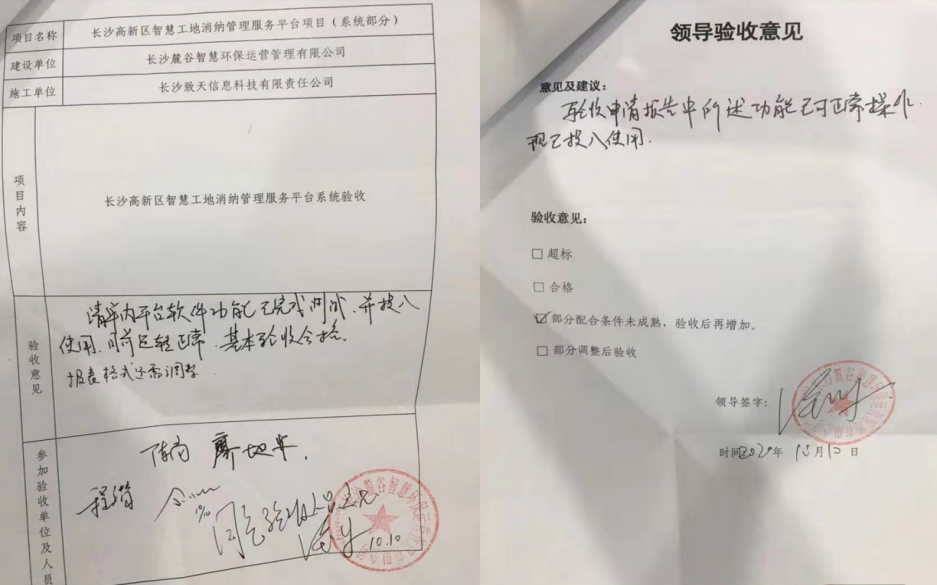 项目名称 长沙高新区智慧工地消纳管理服务平台项目（系统部分）
建设单位 长沙麓谷智慧环保运营管理有限公司
施工单位 长沙致天信息科技有限责任公司
项目内容 长沙高新区智慧工地消纳管理服务平台系统验收
验收意见
清单内平台软件功能已完成测试，并投入
使用，目前运转正常，基本验收合格。
报表格式还需调整
参加验收单位及人员
同意验收
10.10
领导验收意见
意见及建议：
验收申请报告中所述功能已可正常操作.
现已投入使用.
验收意见：
□ 超标
□ 合格
☑ 部分配合条件未成熟，验收后再增加。
□ 部分调整后验收
领导签字：
时间2020年 10月10日